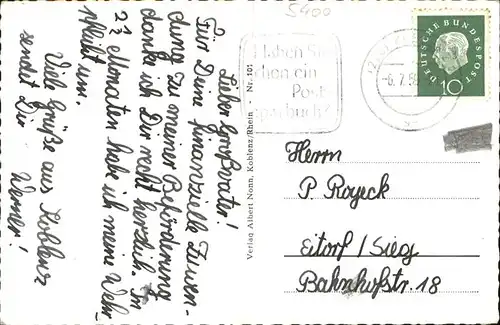 5400
Lieber Großvater!
Für Deine finanzielle Zuwen-
dung zu meiner Beförderung
danke ich Dir recht herzlich. In
2½ Monaten habe ich meine Wehr
pflicht um.
Viele Grüße aus Koblenz
sendet Dir
Werner!
Verlag Albert Nonn, Koblenz/Rhein - Nr. 101
Haben Sie
schon ein
Post
sparbuch?
-6.7.59
DEUTSCHE BUNDESPOST
10
Herrn
P. Royeck
Eitorf/Sieg
Bahnhofstr. 18